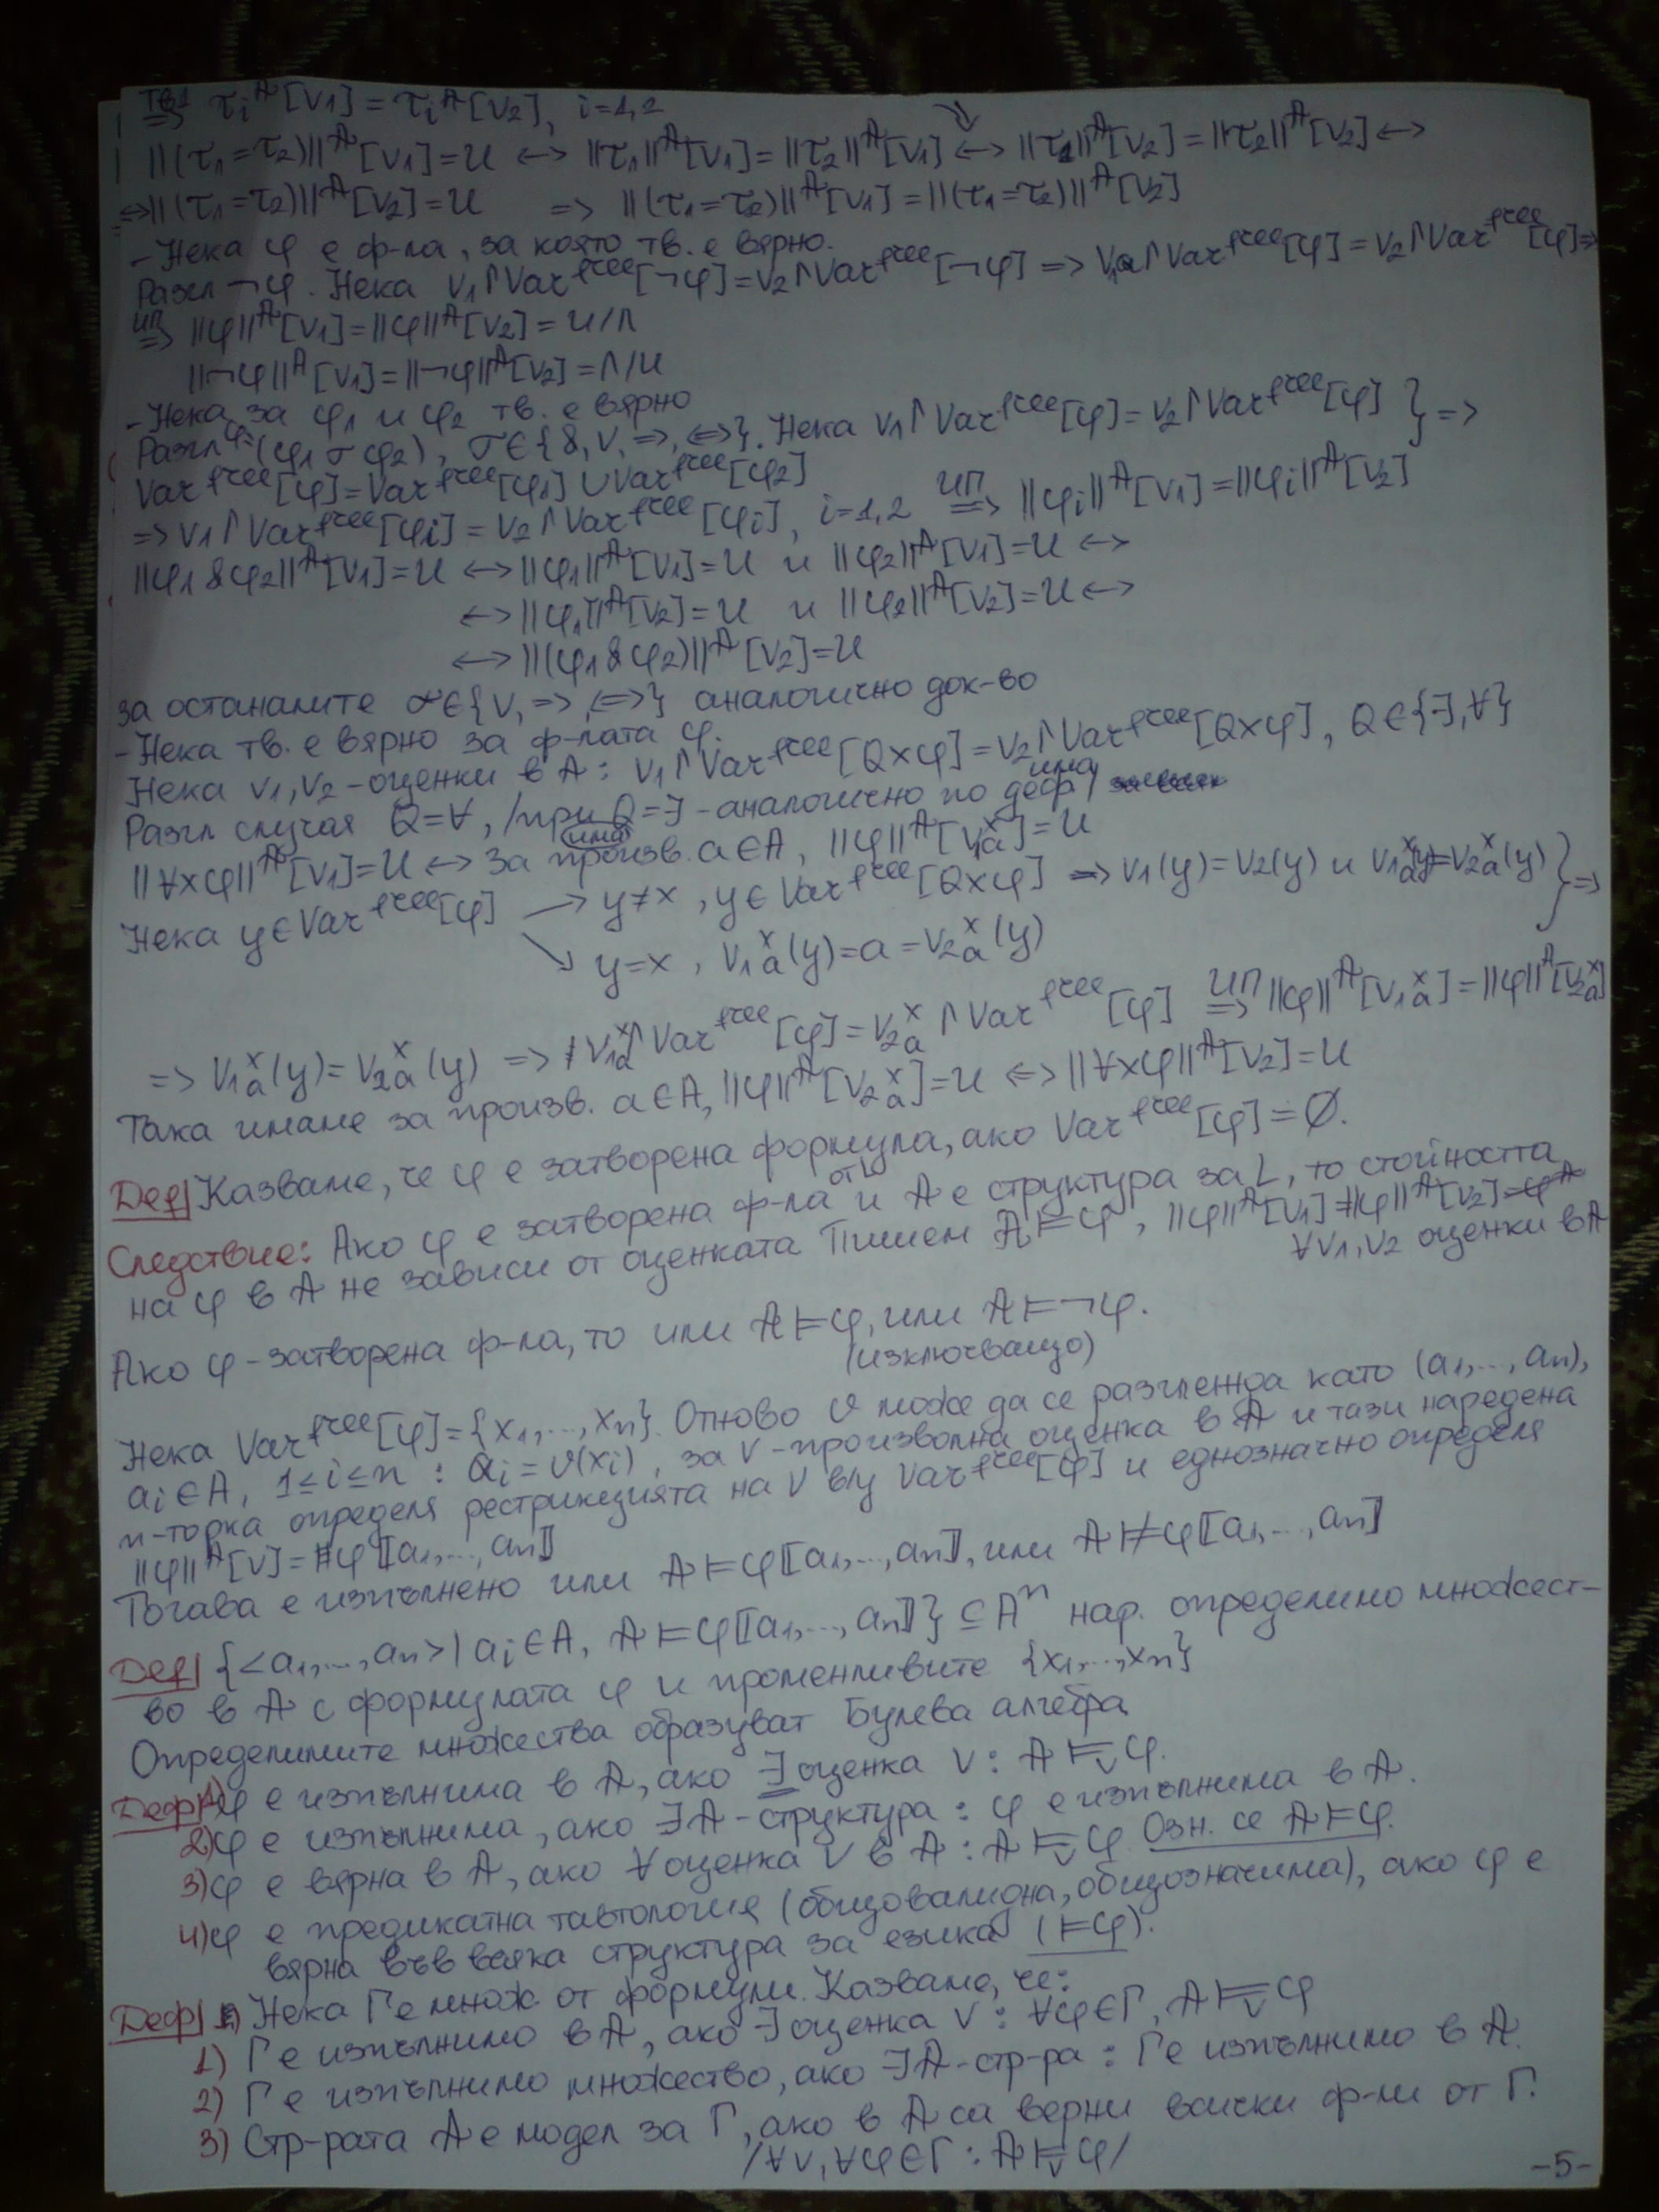 Тв1 => τi^A[v1] = τi^A[v2], i=1,2
||(τ1=τ2)||^A[v1]=И <-> ||τ1||^A[v1]=||τ2||^A[v1] <-> ||τ1||^A[v2]=||τ2||^A[v2] <->
<->||(τ1=τ2)||^A[v2]=И => ||(τ1=τ2)||^A[v1]=||(τ1=τ2)||^A[v2]
-Нека φ е ф-ла, за която тв. е вярно.
Разгл ¬φ. Нека v1↾Var^free[¬φ]=v2↾Var^free[¬φ] => v1↾Var^free[φ]=v2↾Var^free[φ]=>
ИП => ||φ||^A[v1]=||φ||^A[v2]=И/Л
||¬φ||^A[v1]=||¬φ||^A[v2]=Л/И
-Нека за φ1 и φ2 тв. е вярно
Разгл φ=(φ1 σ φ2), σ∈{&,∨,=>,<=>}. Нека v1↾Var^free[φ]=v2↾Var^free[φ] } =>
Var^free[φ]=Var^free[φ1]∪Var^free[φ2]
=> v1↾Var^free[φi]=v2↾Var^free[φi], i=1,2 ИП => ||φi||^A[v1]=||φi||^A[v2]
||φ1&φ2||^A[v1]=И <-> ||φ1||^A[v1]=И и ||φ2||^A[v1]=И <->
<-> ||φ1||^A[v2]=И и ||φ2||^A[v2]=И <->
<-> ||(φ1&φ2)||^A[v2]=И
за останалите σ∈{∨,=>,<=>} аналогично док-во
-Нека тв. е вярно за ф-лата φ.
Нека v1,v2-оценки в A: v1↾Var^free[Qxφ]=v2↾Var^free[Qxφ], Q∈{∃,∀}
Разгл случая Q=∀, /при Q=∃-аналогично по деф/ има
||∀xφ||^A[v1]=И <-> За произв. (има) a∈A, ||φ||^A[v1^x_a]=И
Нека y∈Var^free[φ] → y≠x, y∈Var^free[Qxφ] => v1(y)=v2(y) и v1^x_a(y)=v2^x_a(y) } =>
↘ y=x, v1^x_a(y)=a=v2^x_a(y)
=> v1^x_a(y)=v2^x_a(y) => v1^x_a↾Var^free[φ]=v2^x_a↾Var^free[φ] ИП => ||φ||^A[v1^x_a]=||φ||^A[v2^x_a]
Така имаме за произв. a∈A, ||φ||^A[v2^x_a]=И <=> ||∀xφ||^A[v2]=И
Def| Казваме, че φ е затворена формула, ако Var^free[φ]=∅.
Следствие: Ако φ е затворена ф-ла от L и A е структура за L, то стойността
на φ в A не зависи от оценката Пишем A⊨φ, ||φ||^A[v1]=||φ||^A[v2]=φ^A
∀v1,v2 оценки в A
Ако φ-затворена ф-ла, то или A⊨φ, или A⊨¬φ.
(изключващо)
Нека Var^free[φ]={x1,...,xn}. Отново v може да се разглежда като (a1,...,an),
ai∈A, 1≤i≤n : ai=v(xi), за v-произволна оценка в A и тази наредена
n-торка определя рестрикцията на v в/у Var^free[φ] и еднозначно определя
||φ||^A[v]=φ[[a1,...,an]]
Тогава е изпълнено или A⊨φ[[a1,...,an]], или A⊭φ[[a1,...,an]]
Def| {<a1,...,an>| ai∈A, A⊨φ[[a1,...,an]]}⊆A^n нар. определимо множест-
во в A с формулата φ и променливите {x1,...,xn}
Определимите множества образуват Булева алгебра
Деф| 1) φ е изпълнима в A, ако ∃ оценка v: A⊨_v φ.
2) φ е изпълнима, ако ∃A-структура: φ е изпълнима в A.
3) φ е вярна в A, ако ∀оценка v в A: A⊨_v φ. Озн. се A⊨φ.
4) φ е предикатна тавтология (общовалидна, общозначима), ако φ е
вярна във всяка структура за езика (⊨φ).
Деф| Нека Γ е множ. от формули. Казваме, че:
1) Γ е изпълнимо в A, ако ∃ оценка v: ∀φ∈Γ, A⊨_v φ
2) Γ е изпълнимо множество, ако ∃A-стр-ра: Γ е изпълнимо в A.
3) Стр-рата A е модел за Γ, ако в A са верни всички ф-ли от Γ.
/∀v,∀φ∈Γ: A⊨_v φ/
-5-